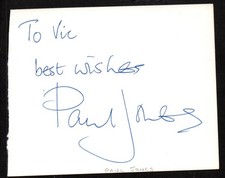 To Vic
best wishes
Paul Jones
PAUL JONES